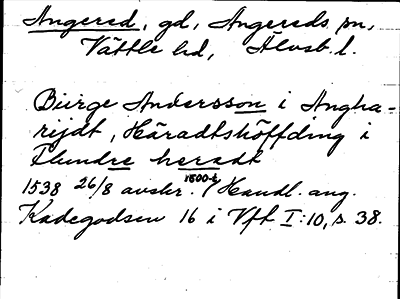 Angered, gd, Angereds sn,
Vättle hd, Älvsb. l.
Börge Andersson i Angha-
rijdt, Häradtshöffding i
Flundre heradt
1538 26/8 avskr. 1600-t. (Handl. ang.
Kadegodsen 16 i Vft I:10, s. 38.